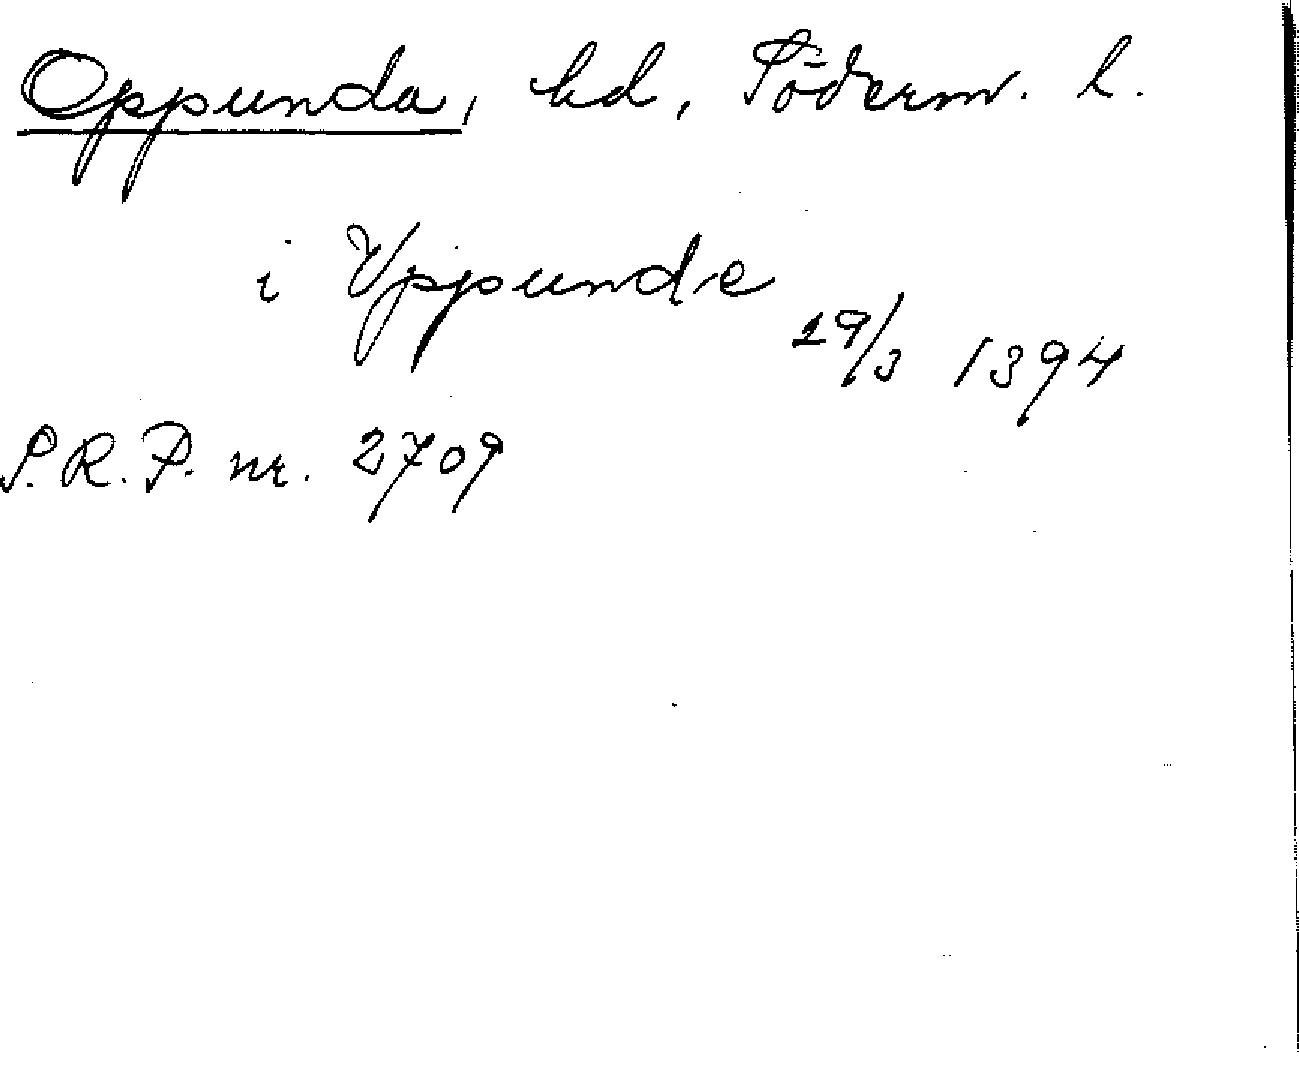 Oppunda, hd, Söderm. l.
i Vppunde
29/3 1394
S.R.P. nr. 2709